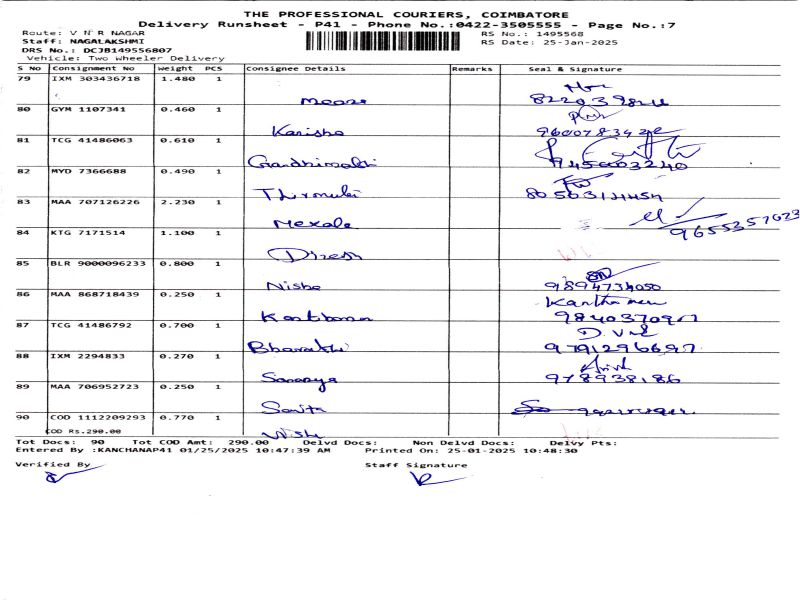 THE PROFESSIONAL COURIERS, COIMBATORE
Delivery Runsheet - P41 - Phone No.:0422-3505555 - Page No.:7
Route: V N R NAGAR RS No.: 1495568
Staff: NAGALAKSHMI RS Date: 25-Jan-2025
DRS No.: DCJB149556807
Vehicle: Two Wheeler Delivery
S No Consignment No Weight PCS Consignee Details Remarks Seal & Signature
79 IXM 303436718 1.480 1
80 GYM 1107341 0.460 1
Kanisha
81 TCG 41486063 0.610 1
Gandhimathi
82 MYD 7366688 0.490 1
83 MAA 707126226 2.230 1
Mekala 9655357023
84 KTG 7171514 1.100 1
Dinesh
85 BLR 9000096233 0.800 1
Nisha 9894734050
86 MAA 868718439 0.250 1
87 TCG 41486792 0.700 1
Bharathi 9791296697
88 IXM 2294833 0.270 1
Saranya 978938186
89 MAA 706952723 0.250 1
Sanita
90 COD 1112209293 0.770 1
COD Rs.290.00 Nisha
Tot Docs: 90 Tot COD Amt: 290.00 Delvd Docs: Non Delvd Docs: Delvy Pts:
Entered By :KANCHANAP41 01/25/2025 10:47:39 AM Printed On: 25-01-2025 10:48:30
Verified By Staff Signature